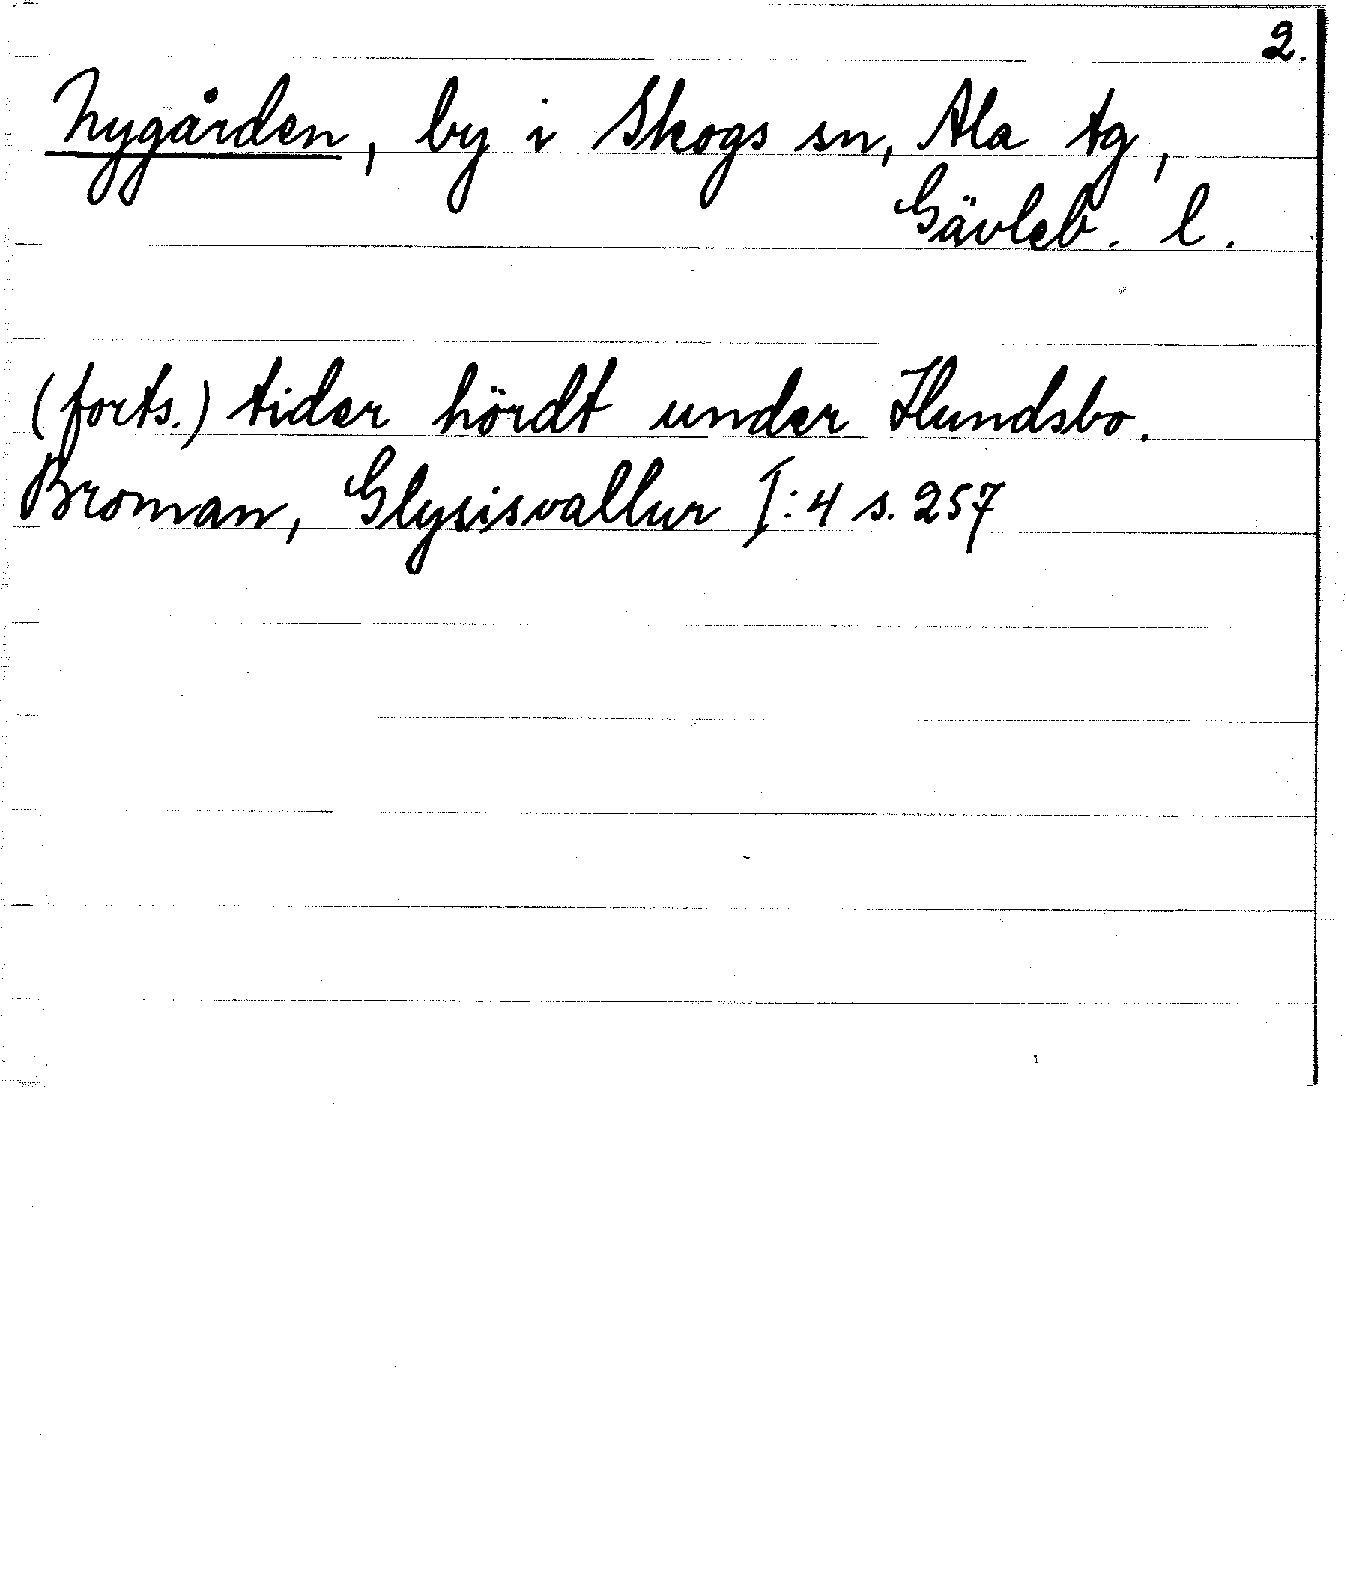 2.
Nygården, by i Skogs sn, Ala tg,
Gävleb. l.
(forts.) tider hördt under Hundsbo.
Broman, Glysisvallur I:4 s. 257